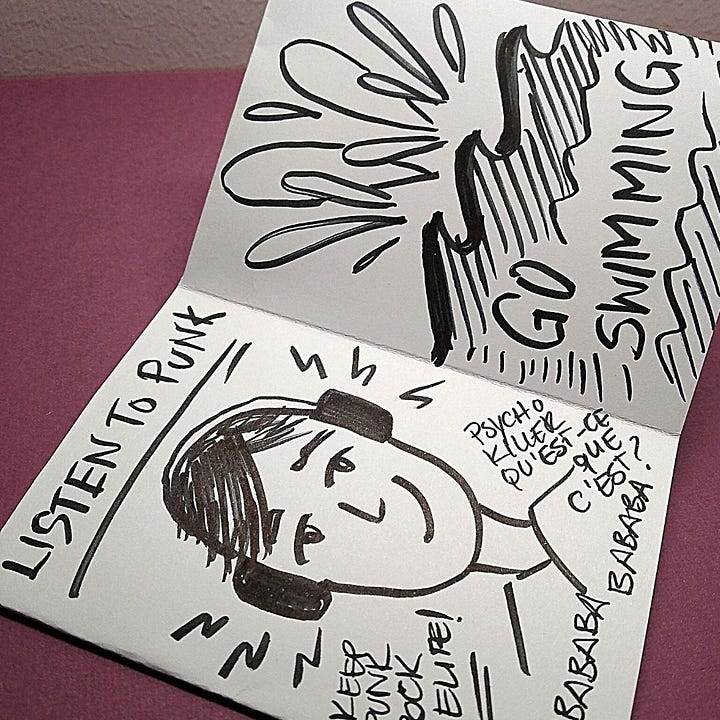 GO
SWIMMING
LISTEN TO PUNK
PSYCHO
KILLER
QU'EST-CE
QUE
C'EST?
BABABA BABABA?
KEEP
PUNK
ROCK
ELITE!